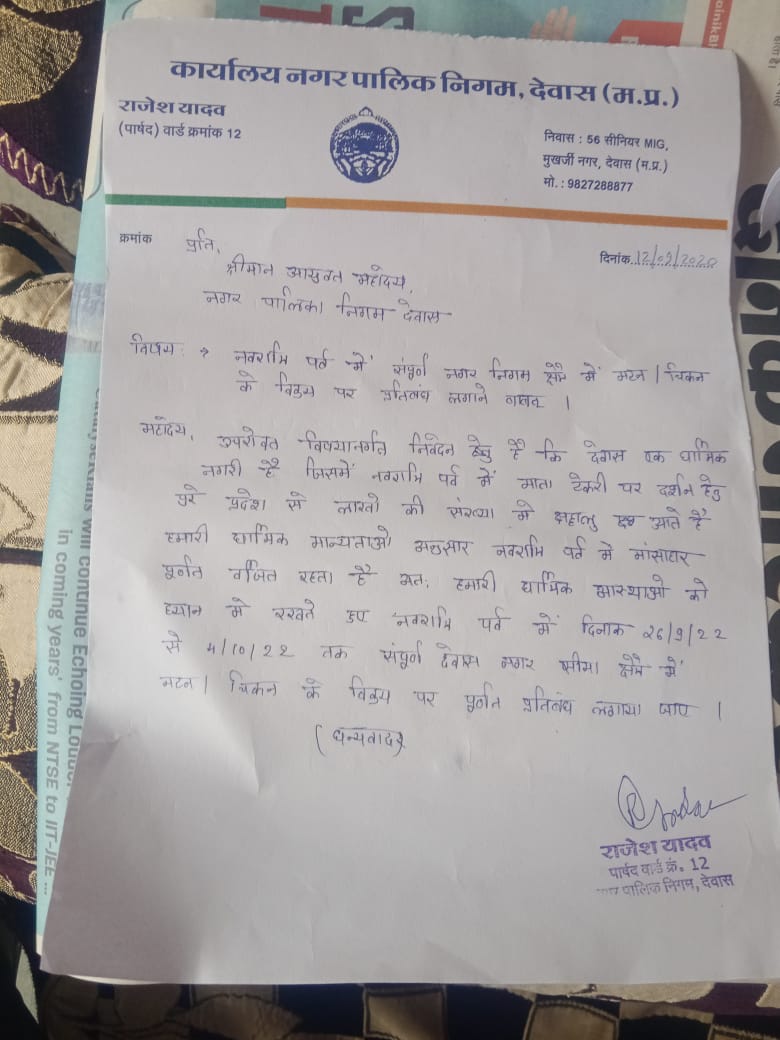 कार्यालय नगर पालिक निगम, देवास (म.प्र.)
राजेश यादव
(पार्षद) वार्ड क्रमांक 12
निवास : 56 सीनियर MIG,
मुखर्जी नगर, देवास (म.प्र.)
मो.: 9827288877
क्रमांक
दिनांक
प्रति,
श्रीमान आयुक्त महोदय,
नगर पालिका निगम देवास
विषय :→ नवरात्रि पर्व में संपूर्ण नगर निगम क्षेत्र में मटन / चिकन
के विक्रय पर प्रतिबंध लगाने बाबत ।
महोदय,
उपरोक्त विषयान्तर्गत निवेदन हेतु है कि देवास एक धार्मिक
नगरी है जिसमें नवरात्रि पर्व में माता टेकरी पर दर्शन हेतु
पुरे प्रदेश से लाखो की संख्या में श्रद्धालु आते है
हमारी धार्मिक मान्यताओ अनुसार नवरात्रि पर्व में मांसाहार
पूर्णत वर्जित रहता है अतः हमारी धार्मिक आस्थाओ को
ध्यान में रखते हुए नवरात्रि पर्व में दिनांक 26/9/22
से 4/10/22 तक संपूर्ण देवास नगर सीमा क्षेत्र में
मटन / चिकन के विक्रय पर पूर्णत प्रतिबंध लगाया जाए ।
(धन्यवाद)
राजेश यादव
पार्षद वार्ड क्रं. 12
पालिक निगम, देवास
will continue Echoing Louder
in coming years' from NTSE to IIT-JEE ...